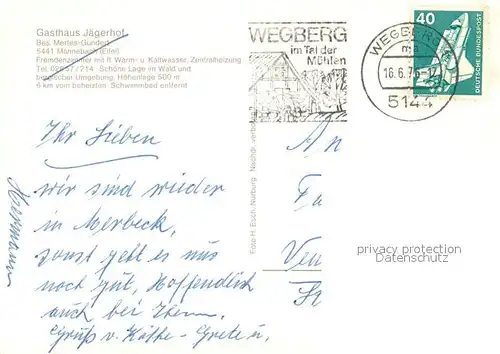 Gasthaus Jägerhof
Bes. Mertes-Gundert
5441 Mannebach (Eifel)
Fremdenzimmer mit fl. Warm- u. Kaltwasser, Zentralheizung
Tel. 02657/214 Schöne Lage im Wald und
bergischer Umgebung, Höhenlage 500 m
6 km vom beheizten Schwimmbad entfernt
WEGBERG
im Tal der
Mühlen
WEGBERG
ma
16.6.76-17
5144
40
DEUTSCHE BUNDESPOST
Foto H. Esch, Nürburg Nachdr. verboten
Ihr Lieben
wir sind wieder
in Merbeck,
sonst geht es uns
noch gut, Hoffendlich
auch bei Ihnen.
Gruß v. Käthe - Grete u.
Hermann
An
Fa
privacy protection
Datenschutz